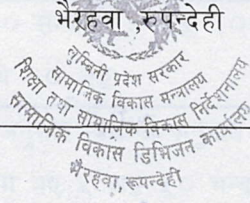 भैरहवा ,रुपन्देही
लुम्बिनी प्रदेश सरकार
सामाजिक विकास मन्त्रालय
शिक्षा तथा सामाजिक विकास निर्देशनालय
सामाजिक विकास डिभिजन कार्यालय
भैरहवा, रुपन्देही